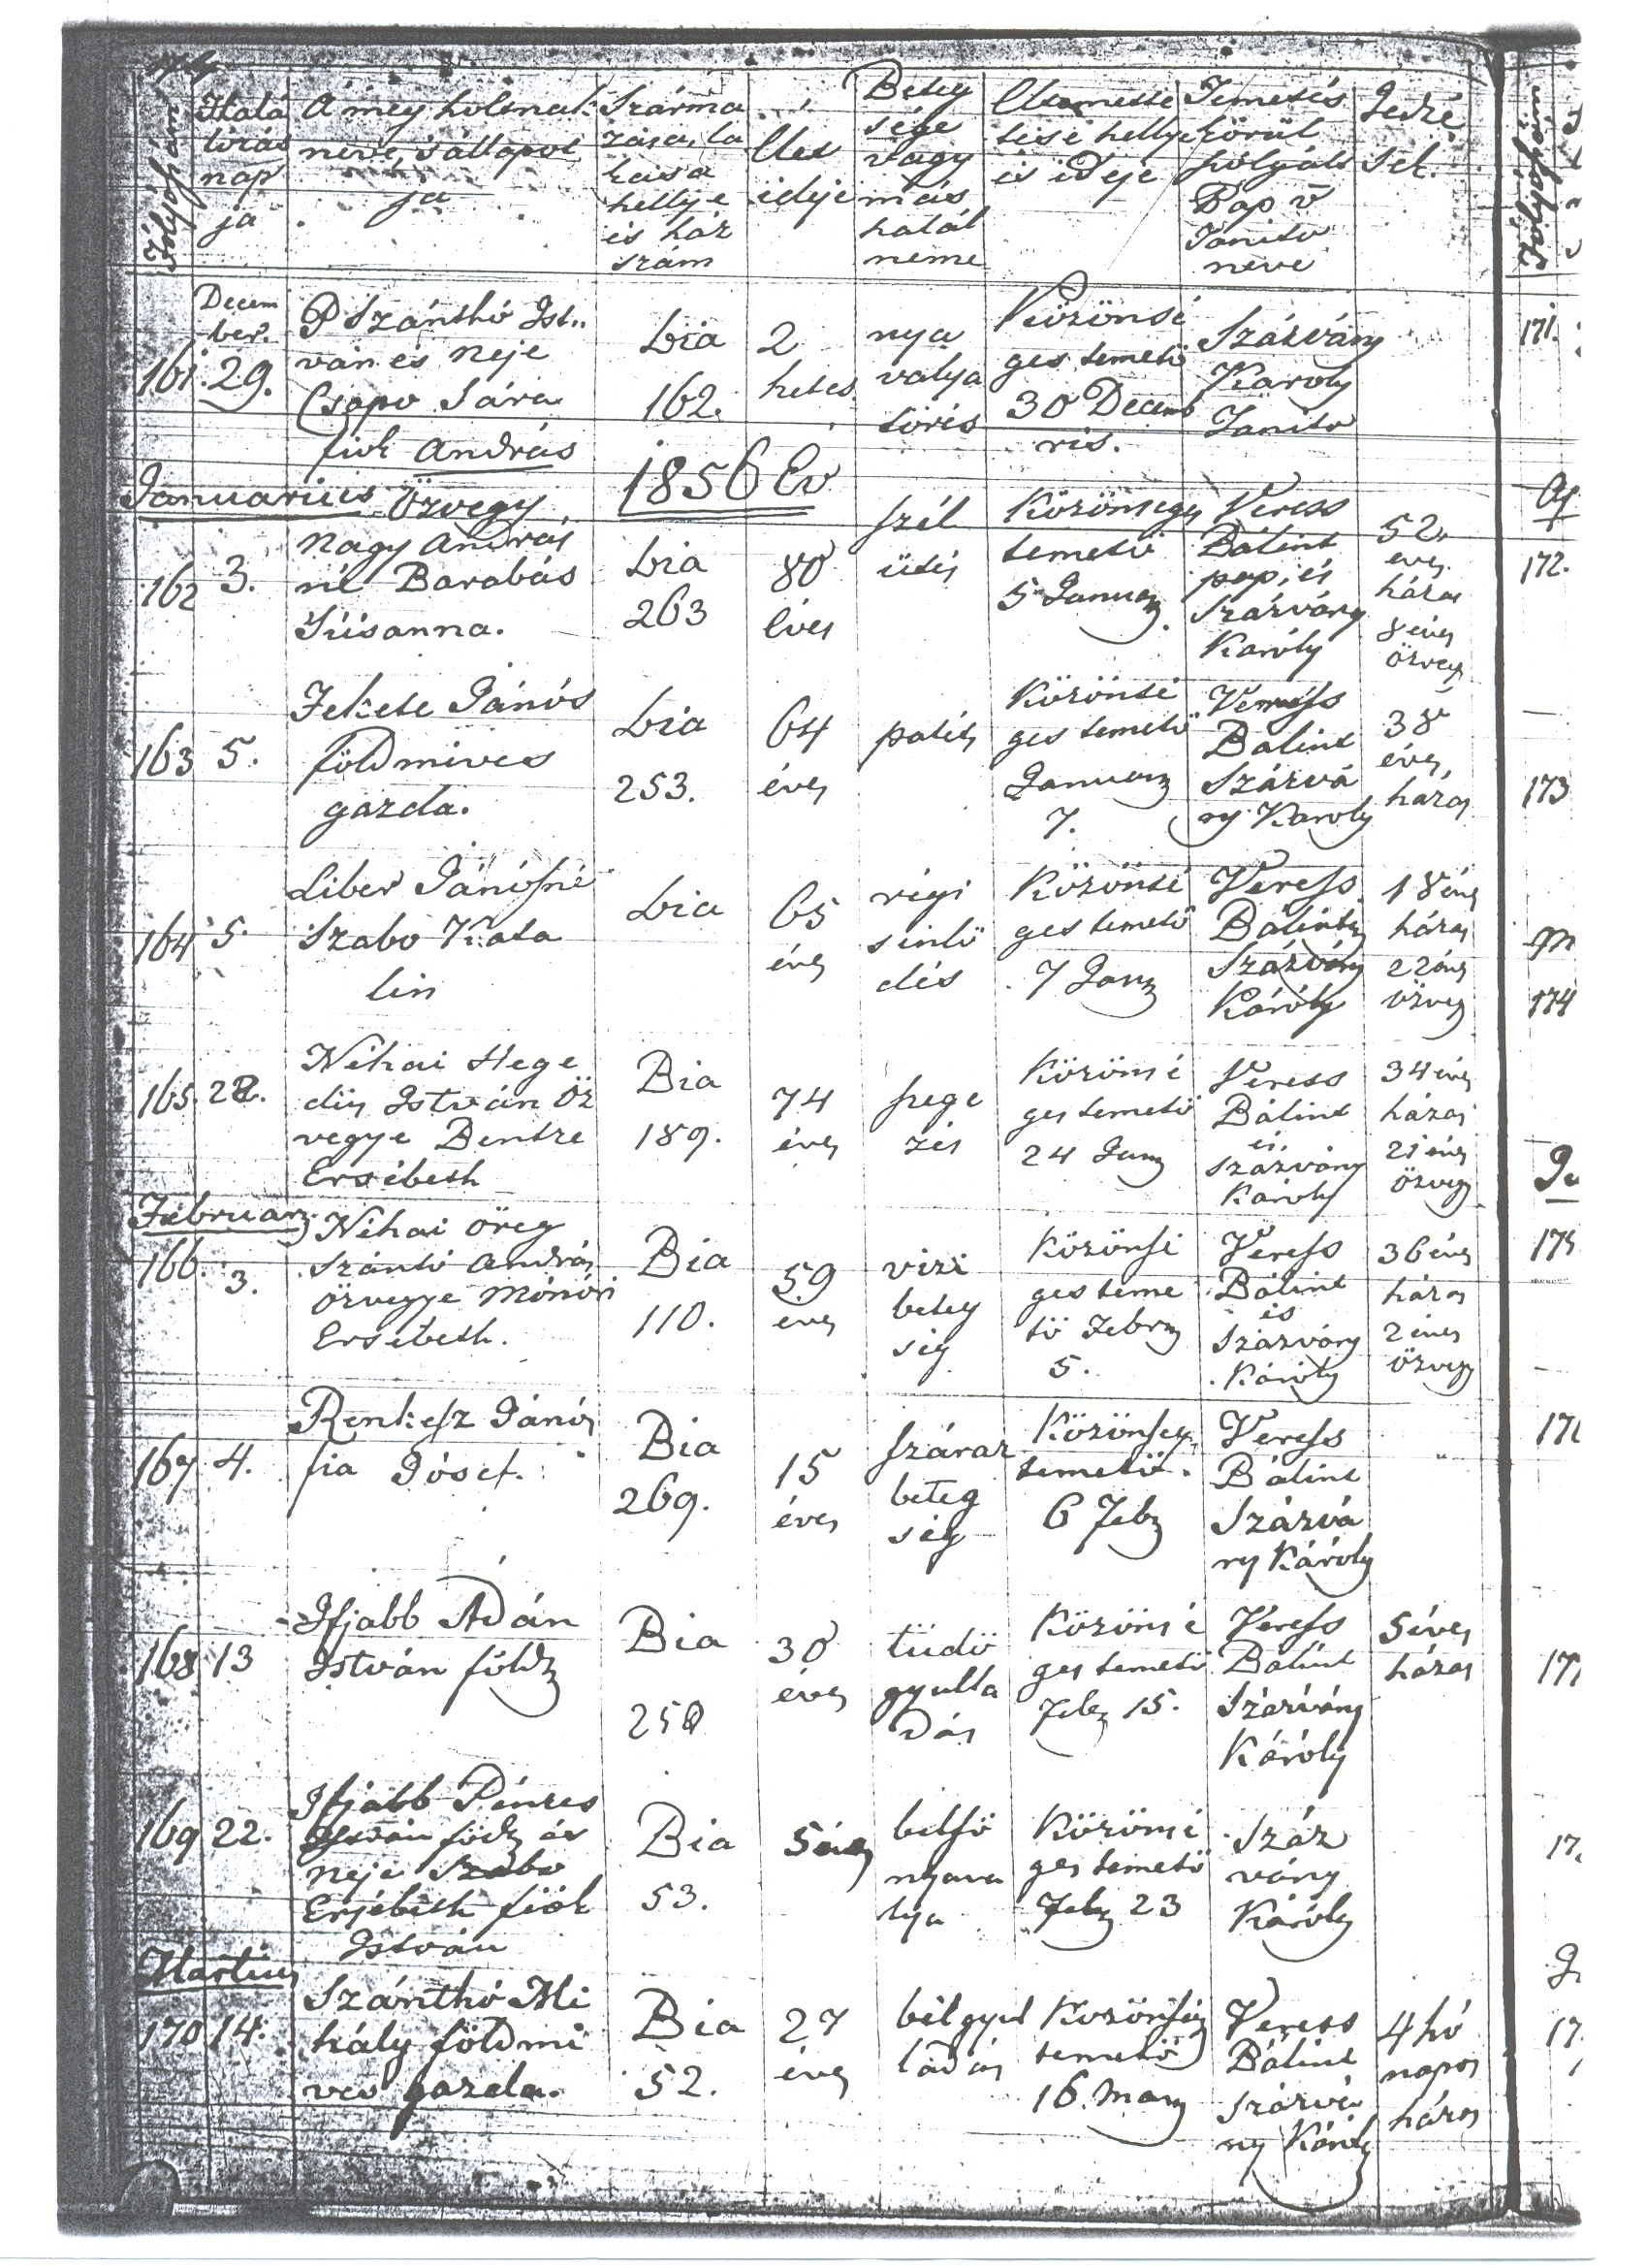 Folyó szám
Halá
lozás
nap
ja
A meg holtnak
neve, s állapot
ja
Szárma
zása, la
kása
hellye
és ház
szám
Élet
ideje
Beteg
sége
vagy
más
halál
neme
Eltemette
tése hellye
és ideje
Temetés
körül
szolgált
Pap v
Tanító
neve
Jedzé
sek.
Folyó szám
Decem
ber.
161. 29.
P Szánthó Ist,,
ván és Neje
Csapo Sára
fiok András
bia
162.
2
hetes
nya
valya
törés
Közönsé
ges temető
30 Decemb
ris.
Szárvány
Karoly
Tanito
171.
1856 Ev
Januarius
162 3.
Özvegy
Nagy András
né Barabás
Súsanna.
bia
263
80
éves
szél
ütés
Közönsegs
temető
5 Januarz.
Veress
Bálint
pap, és
Szárvány
Karóly
52.
eves
házas
8 éves
özvegy
172.
163 5.
Fekete János
földmives
gazda.
bia
253.
64
éves
patéts
Közönsé
ges temető
Januarz
7.
Veress
Bálint
Szárvá
ny Karoly
38
éves
házas
173
164 5.
Liber Jánósné
Szabo Kata
lin
bia
65
éves
régi
sinlő
dés
Közönsé
ges temető
7 Janz
Veress
Bálint
Szárvány
Károly
18 éves
házas
22 éves
özvegy
174
165. 22.
Néhai Hege
dűs István Öz
vegye Bentze
Ersébeth
Bia
189.
74
éves
szege
zés
Közönsé
ges temető
24 Janz
Veress
Bálint
és
Szárvány
Károly
34 éves
házas
21 éves
özvegy
Februarz
166. 3.
Néhai öreg
Szántó András
özvegye Mónóri
Ersébeth.
Bia
110.
59
eves
vizi
beteg
ség
Közönsé
ges teme
tő Febrz
5.
Veress
Bálint
és
Szárvány
Károly
36 éves
házas
2 éves
özvegy
175
167 4.
Renkesz Jánós
fia Jósef.
Bia
269.
15
éves
száraz
beteg
ség
Közönseges
temető.
6 Febz
Veress
Bálint
Szárvá
ny Károly
"
168 13
Ifjabb Ádán
István földz
Bia
250
30
éves
tüdő
gyulla
dás
Közönsé
ges temető
Febz 15.
Veress
Bálint
Szárvány
Károly
5 éves
házas
169 22.
Ifjabb Péntes
István földz és
neje Szabo
Ersébeth fiok
István
Bia
53.
5 éves
belső
nyava
lya
Közönsé
ges temető
Febz 23
Szár
vány
Károly
Martius
170 14.
Szánthó Mi
hály földmi
ves gazda.
Bia
52.
27
éves
bélgyul
ladás
Közönség
temető
16. Marz
Veress
Bálint
Szárvá
ny Károly
4 hó
napos
házas